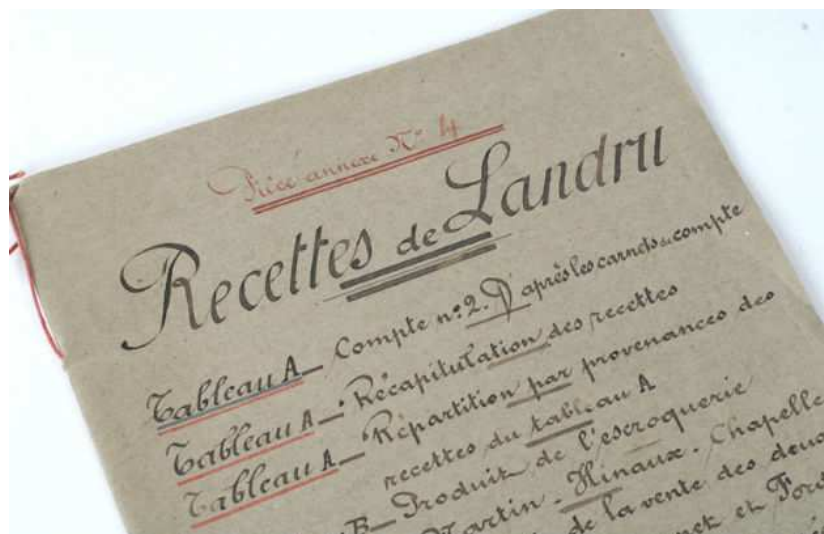 Pièce annexe N° 4
Recettes de Landru
Tableau A_ Compte n° 2. D'après les carnets de compte
Tableau A_ Récapitulation des recettes
Tableau A_ Répartition par provenances des
recettes du tableau A
B_ Produit de l'escroquerie
Martin - Hinaux - Chapelle
de la vente des deux
et Ford